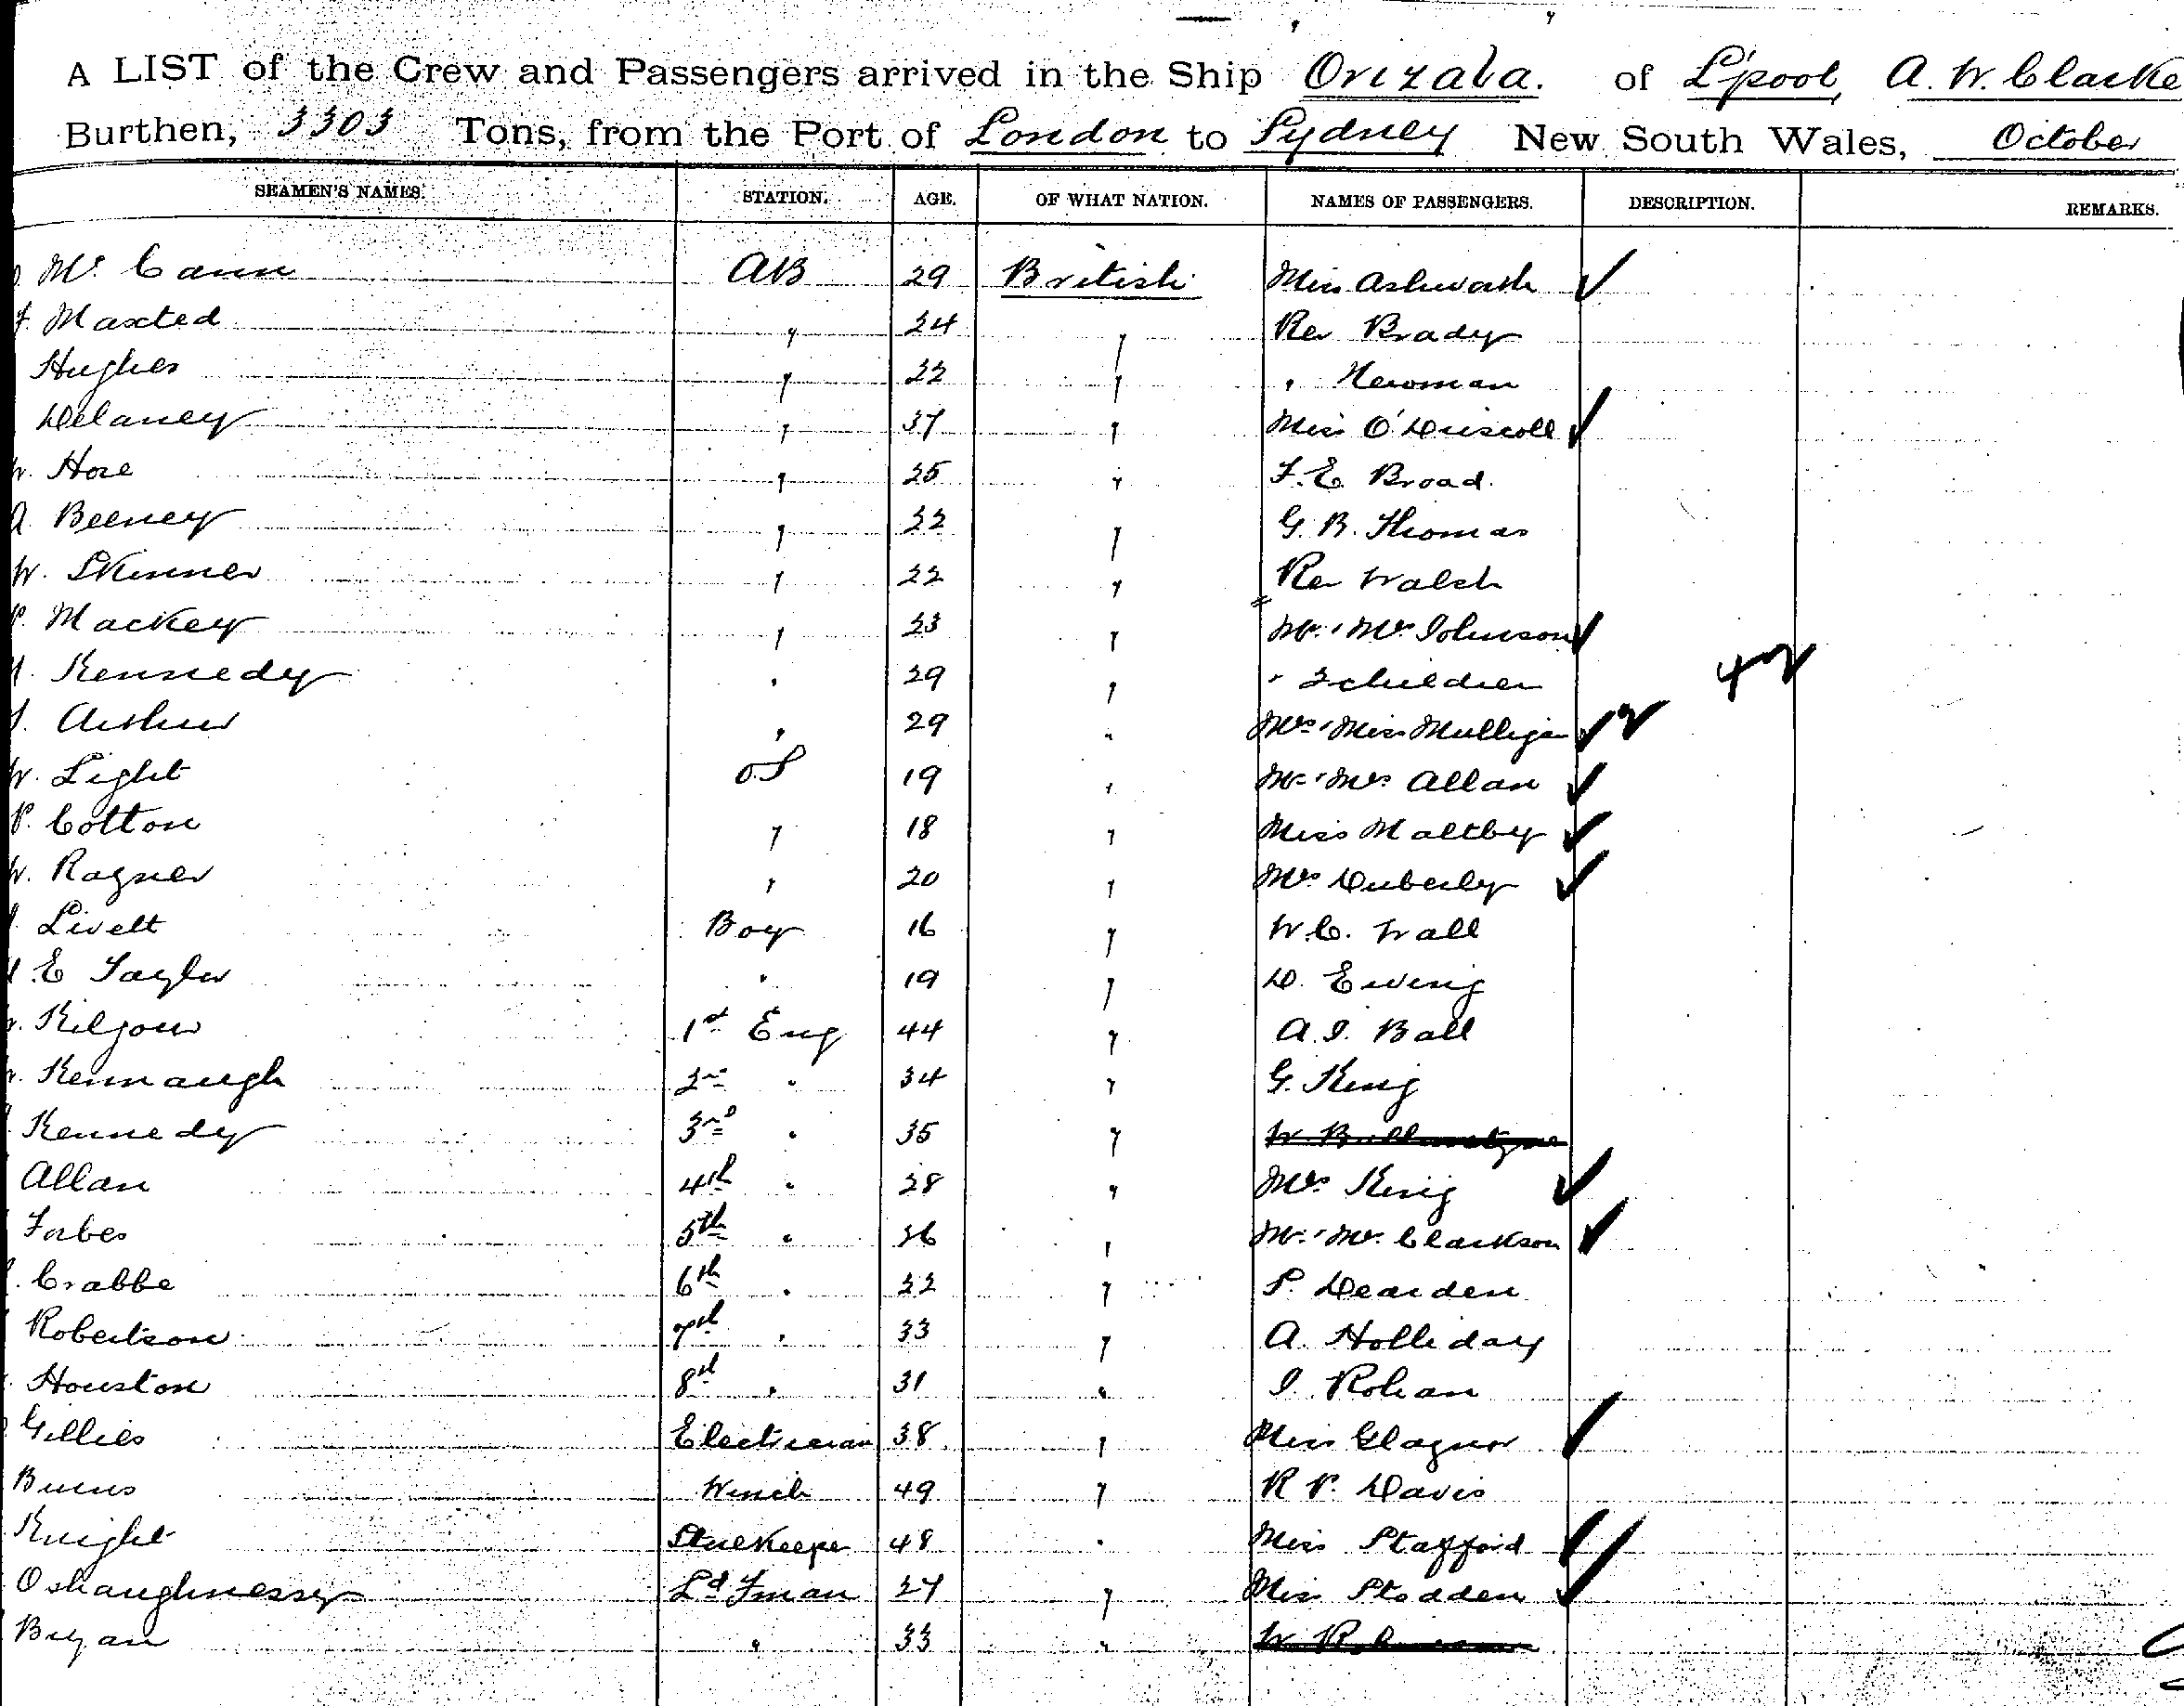 A LIST of the Crew and Passengers arrived in the Ship Orizaba. of L'pool, A. W. Clarke
Burthen, 3303 Tons, from the Port of London to Sydney New South Wales, October
SEAMEN'S NAMES. STATION. AGE. OF WHAT NATION. NAMES OF PASSENGERS. DESCRIPTION. REMARKS.
Mc Cann AB 29 British Miss Ashworth
Maxted " 24 " Rev Brady
Hughes " 22 " " Newman
Delaney " 37 " Miss O'Driscoll
W. Hoxe " 25 " F. E. Broad.
A. Beeney " 22 " G. B. Thomas
W. Skinner " 22 " Rev Walsh
P. Mackey " 23 " Mr. & Mrs Johnson
Kennedy " 29 " " 2 children
Arthur " 29 " Mrs & Miss Mulligan
W. Light OS 19 " Mr & Mrs Allan
P. Cotton " 18 " Miss Maltby
W. Ragner " 20 " Mrs Duberly
Livett Boy 16 " W. C. Wall
E Taylor " 19 " D. Ewing
Kilgour 1st Eng 44 " A. J. Ball
Kennaugh 2nd " 34 " G. King
Kennedy 3rd " 35 "
Allan 4th " 28 " Mrs King
Forbes 5th " 26 " Mr. & Mrs. Clarkson
Crabbe 6th " 32 " P. Dearden
Robertson 7th " 33 " A. Holliday
Houston 8th " 31 " J. Rohan
Gillies Electrician 38 " Miss Glagnor
Burns Winch 49 " R. P. Davis
Knight Storekeeper 48 " Miss Stafford
Oshaughnessy Ld Fman 27 " Miss Stodden
Bryan " 33 "